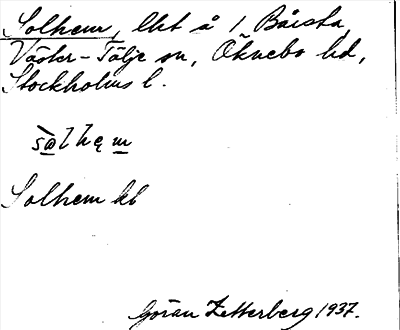 Solhem, lht å 1 Båista,
Väster-Tälje sn, Öknebo hd,
Stockholms l.
Solhem kb
Göran Zetterberg 1937.